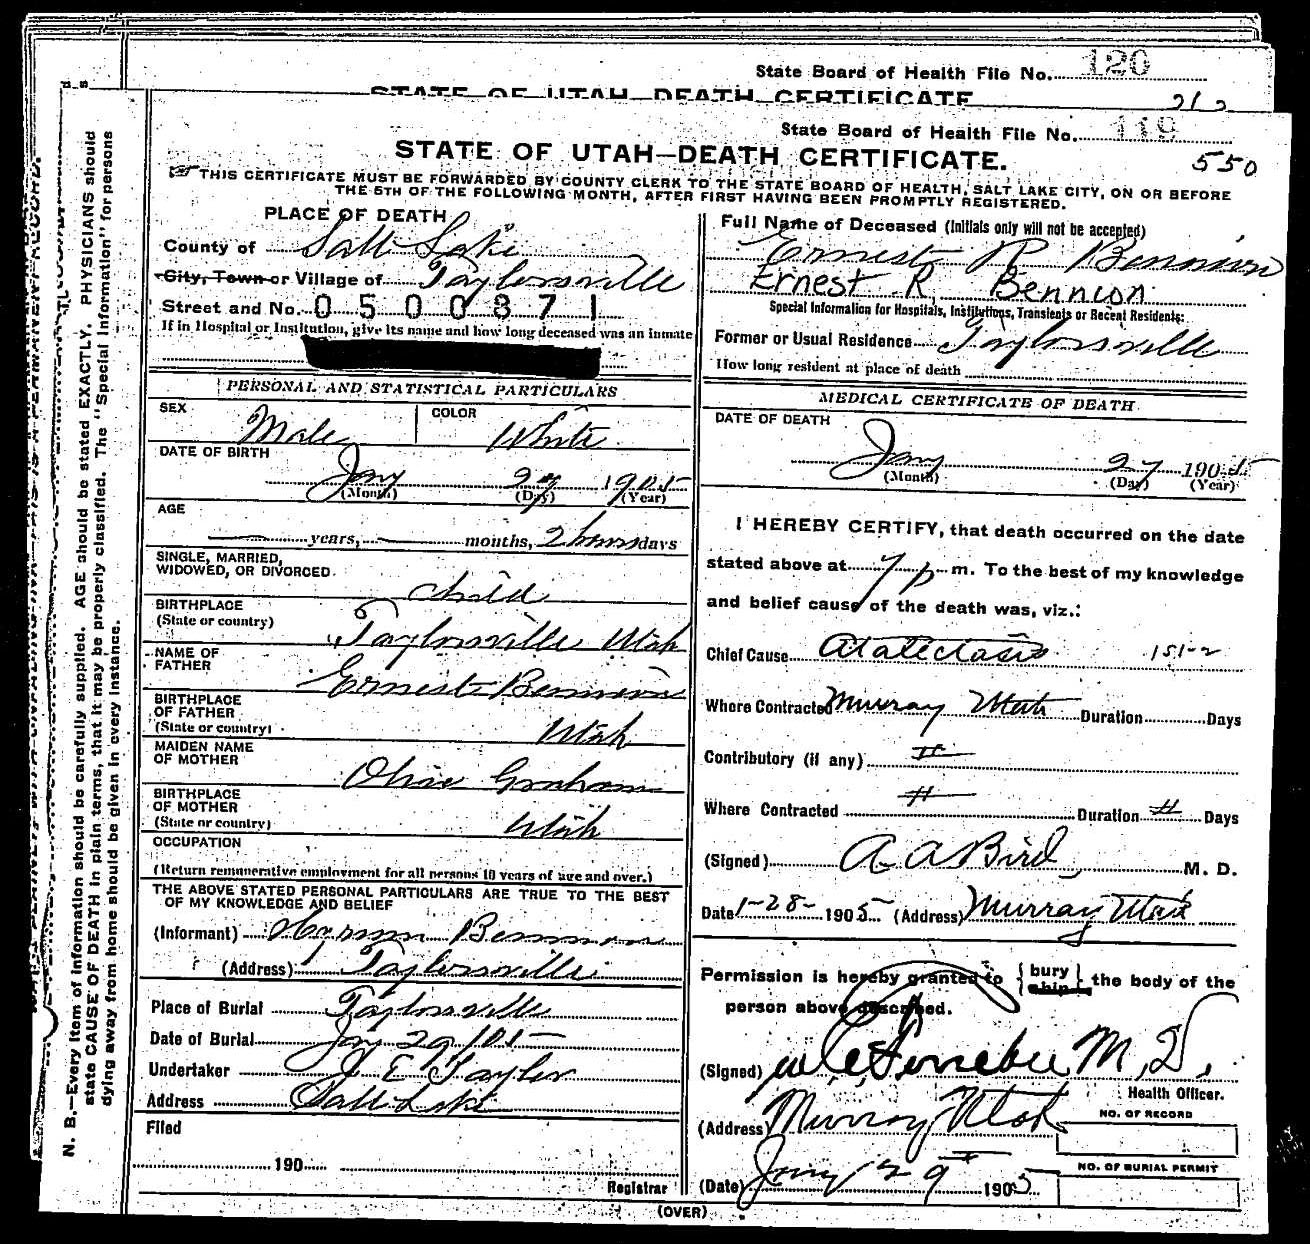 State Board of Health File No. 120
STATE OF UTAH DEATH CERTIFICATE
212
State Board of Health File No. 119
STATE OF UTAH—DEATH CERTIFICATE.
550
THIS CERTIFICATE MUST BE FORWARDED BY COUNTY CLERK TO THE STATE BOARD OF HEALTH, SALT LAKE CITY, ON OR BEFORE
THE 5TH OF THE FOLLOWING MONTH, AFTER FIRST HAVING BEEN PROMPTLY REGISTERED.
PLACE OF DEATH
County of Salt Lake
City, Town or Village of Taylorsville
Street and No. 0500371
If in Hospital or Institution, give its name and how long deceased was an inmate
PERSONAL AND STATISTICAL PARTICULARS
SEX Male COLOR White
DATE OF BIRTH
Jany 27 1905
(Month) (Day) (Year)
AGE
years, months, 2 hours days
SINGLE, MARRIED,
WIDOWED, OR DIVORCED. Child
BIRTHPLACE
(State or country) Taylorsville Utah
NAME OF
FATHER Ernest Bennion
BIRTHPLACE
OF FATHER
(State or country) Utah
MAIDEN NAME
OF MOTHER Olive Graham
BIRTHPLACE
OF MOTHER
(State or country) Utah
OCCUPATION
(Return remunerative employment for all persons 10 years of age and over.)
THE ABOVE STATED PERSONAL PARTICULARS ARE TRUE TO THE BEST
OF MY KNOWLEDGE AND BELIEF
(Informant) Hyrum Bennion
(Address) Taylorsville
Place of Burial Taylorsville
Date of Burial Jany 29/05
Undertaker J E Taylor
Address Salt Lake
Filed
190
Registrar
Full Name of Deceased (Initials only will not be accepted)
Ernest R Bennion
Ernest R. Bennion
Special Information for Hospitals, Institutions, Transients or Recent Residents:
Former or Usual Residence Taylorsville
How long resident at place of death
MEDICAL CERTIFICATE OF DEATH
DATE OF DEATH
Jany 27 1905
(Month) (Day) (Year)
I HEREBY CERTIFY, that death occurred on the date
stated above at 7 p m. To the best of my knowledge
and belief cause of the death was, viz.:
Chief Cause Atalectasis 151-2
Where Contracted Murray Utah Duration Days
Contributory (if any)
Where Contracted Duration Days
(Signed) A A Bird M. D.
Date 1-28- 1905 (Address) Murray Utah
Permission is hereby granted to { bury ship } the body of the
person above described.
(Signed) M.D.
Health Officer.
(Address) Murray Utah
NO. OF RECORD
NO. OF BURIAL PERMIT
(Date) Jany 29 1905
(OVER)
N. B.—Every item of information should be carefully supplied. AGE should be stated EXACTLY. PHYSICIANS should
state CAUSE OF DEATH in plain terms, that it may be properly classified. The "Special Information" for persons
dying away from home should be given in every instance.